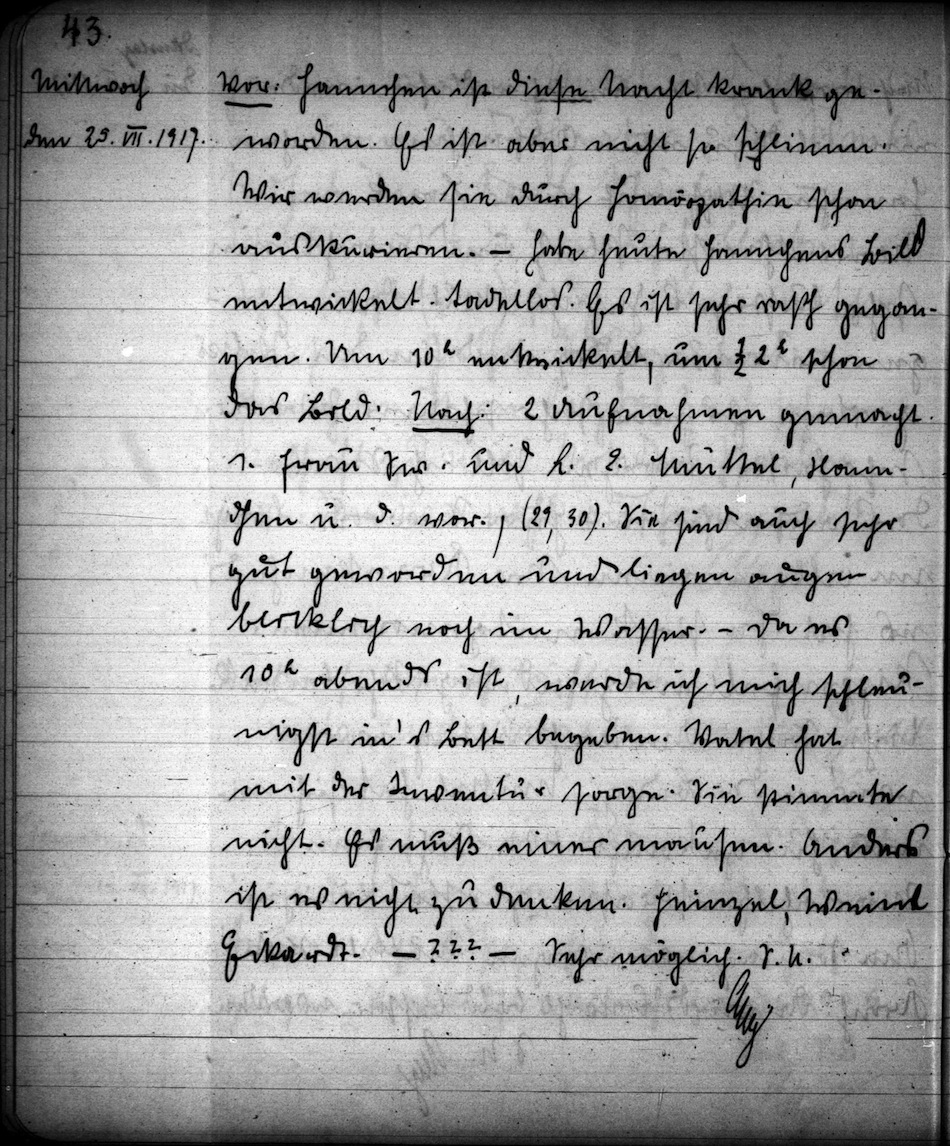 43.
Mittwoch
den 25. VII. 1917.
Vor: Hannchen ist diese Nacht krank ge-
worden. Es ist aber nicht so schlimm.
Wir werden sie durch Homöopathie schon
auskurieren. – Habe heute Hannchens Bild
entwickelt. Tadellos. Es ist sehr rasch gegan-
gen. Um 10h entwickelt, um ½ 2h schon
das Bild. Nach: 2 Aufnahmen gemacht.
1. Frau Sw. und L. 2. Muttel, Hann-
chen u. d. vor., (29, 30). Sie sind auch sehr
gut geworden und liegen augen
blicklich noch im Wasser. – Da es
10h abends ist, werde ich mich schleu-
nigst in's Bett begeben. Vatel hat
mit der Inventur Sorge. Sie stimmte
nicht. Es muß einer mausen. Anders
ist es nicht zu denken. Heinzel, Weinl
Eckardt. – ??? – Sehr möglich. S. U.